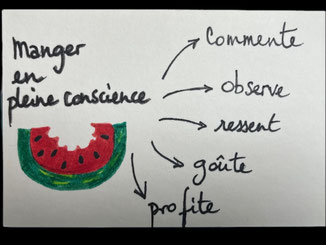 Manger
en
pleine conscience
Commente
observe
ressent
goûte
profite